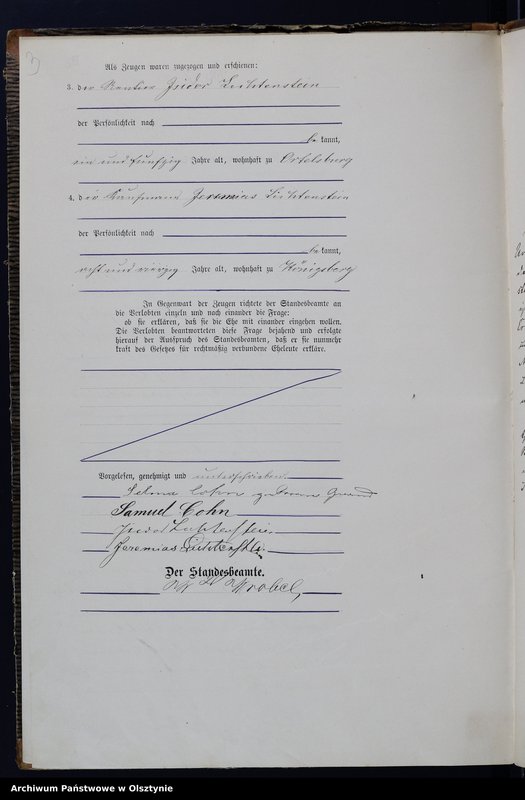 3
Als Zeugen waren zugezogen und erschienen:
3. der Rentier Isidor Lichtenstein
der Persönlichkeit nach
be kannt,
ein und fünfzig Jahre alt, wohnhaft zu Ortelsburg
4. der Kaufmann Jeremias Lichtenstein
der Persönlichkeit nach
be kannt,
acht und vierzig Jahre alt, wohnhaft zu Königsberg
In Gegenwart der Zeugen richtete der Standesbeamte an
die Verlobten einzeln und nach einander die Frage:
ob sie erklären, daß sie die Ehe mit einander eingehen wollen.
Die Verlobten beantworteten diese Frage bejahend und erfolgte
hierauf der Ausspruch des Standesbeamten, daß er sie nunmehr
kraft des Gesetzes für rechtmäßig verbundene Eheleute erkläre.
Vorgelesen, genehmigt und unterschrieben.
Selma Cohn geborene
Samuel Cohn
Isidor Lichtenstein
Jeremias Lichtenstein
Der Standesbeamte.
Wrobel
Archiwum Państwowe w Olsztynie